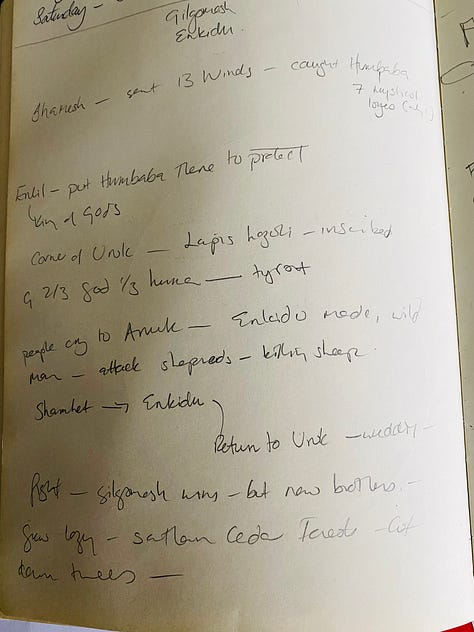 Saturday -
Gilgamesh
Enkidu.
Shamesh - sent 13 Winds - caught Humbaba
7 mystical
layers
Enlil - put Humbaba There to protect
King of Gods
Corner of Uruk - Lapis Lazuli - inscribed
G 2/3 god 1/3 human - tyrant
people cry to Anuk - Enkidu made, wild
man - attack shepreds - killing sheep
Shamhat → Enkidu
Return to Uruk - wedding -
fight - gilgamesh wins - but now brothers. -
Grow lazy - Cedar Forest - Cut
down trees -